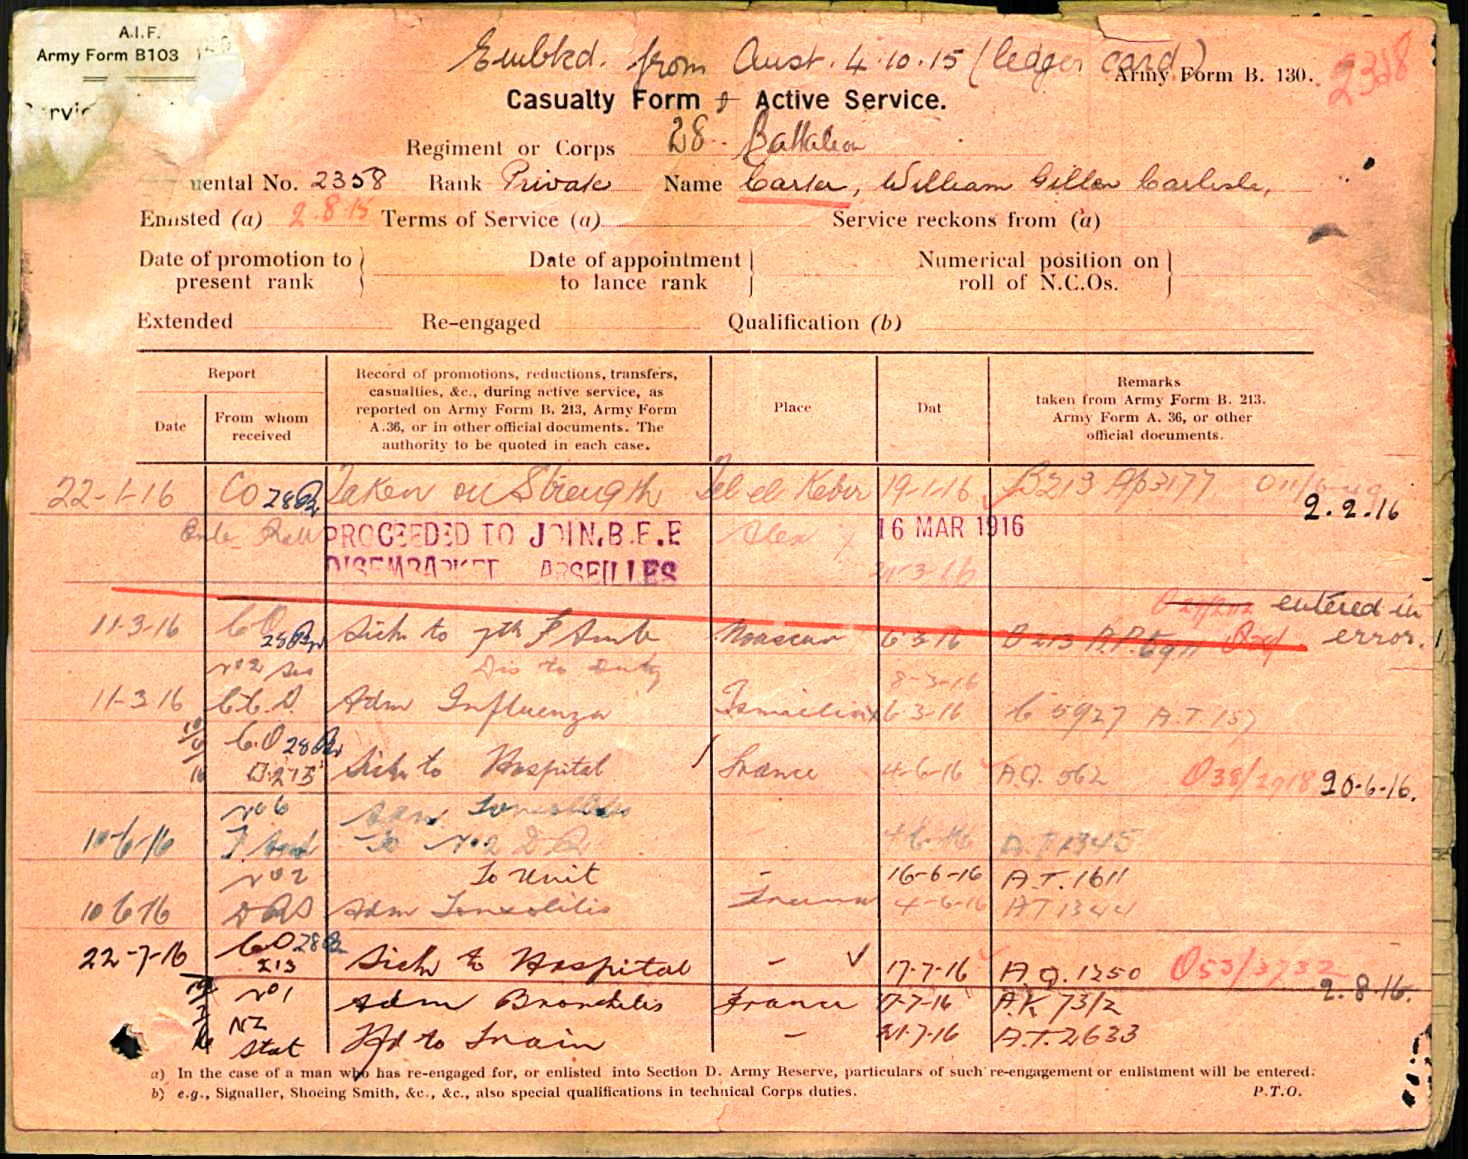 A.I.F.
Army Form B103
Embkd. from Aust. 4.10.15 (ledger card)
Army Form B. 130.
2358
Casualty Form Active Service.
Regiment or Corps 28 Battalion
ental No. 2358 Rank Private Name Carter, William Carlisle,
Enlisted (a) 2.8.15 Terms of Service (a) Service reckons from (a)
Date of promotion to present rank
Date of appointment to lance rank
Numerical position on roll of N.C.Os.
Extended Re-engaged Qualification (b)
Report
Date
From whom received
Record of promotions, reductions, transfers, casualties, &c., during active service, as reported on Army Form B. 213, Army Form A.36, or in other official documents. The authority to be quoted in each case.
Place
Dat
Remarks taken from Army Form B. 213. Army Form A. 36, or other official documents.
22-1-16 CO 28 Bn Taken on Strength Tel el Kebir 19-1-16 B213 2.2.16
PROCEEDED TO JOIN.B.E.F Alex 16 MAR 1916
21-3-16
entered in
11-3-16 CO 28 Bn Sick to 7th F Amb Moascar 6-3-16 B 213 error.
No 2 Dis to Duty 8-3-16
11-3-16 C.C.S. Adm Influenza Ismailia 6-3-16 C 5927 A.T 157
10/6/16 C.O 28 Bn B.213 Sick to Hospital France 4-6-16 A.Q. 562 20-6-16.
No 6 Adm Tonsilitis
10-6-16 F Amb To No 2 DRS 4-6-16 A.T 1345
No 2 To Unit 16-6-16 A.T. 1611
10 6 16 DRS Adm Tonsolitis France 4-6-16 AT 1344
22-7-16 CO 28 Bn 213 Sick to Hospital - 17-7-16 A.Q. 1250 O53/3732 2.8.16.
No 1 Adm Bronchitis France 17-7-16 A.K 73/2
NZ Stat Tfd to Train - 21-7-16 A.T. 2633
a) In the case of a man who has re-engaged for, or enlisted into Section D. Army Reserve, particulars of such re-engagement or enlistment will be entered.
b) e.g., Signaller, Shoeing Smith, &c., &c., also special qualifications in technical Corps duties.
P.T.O.